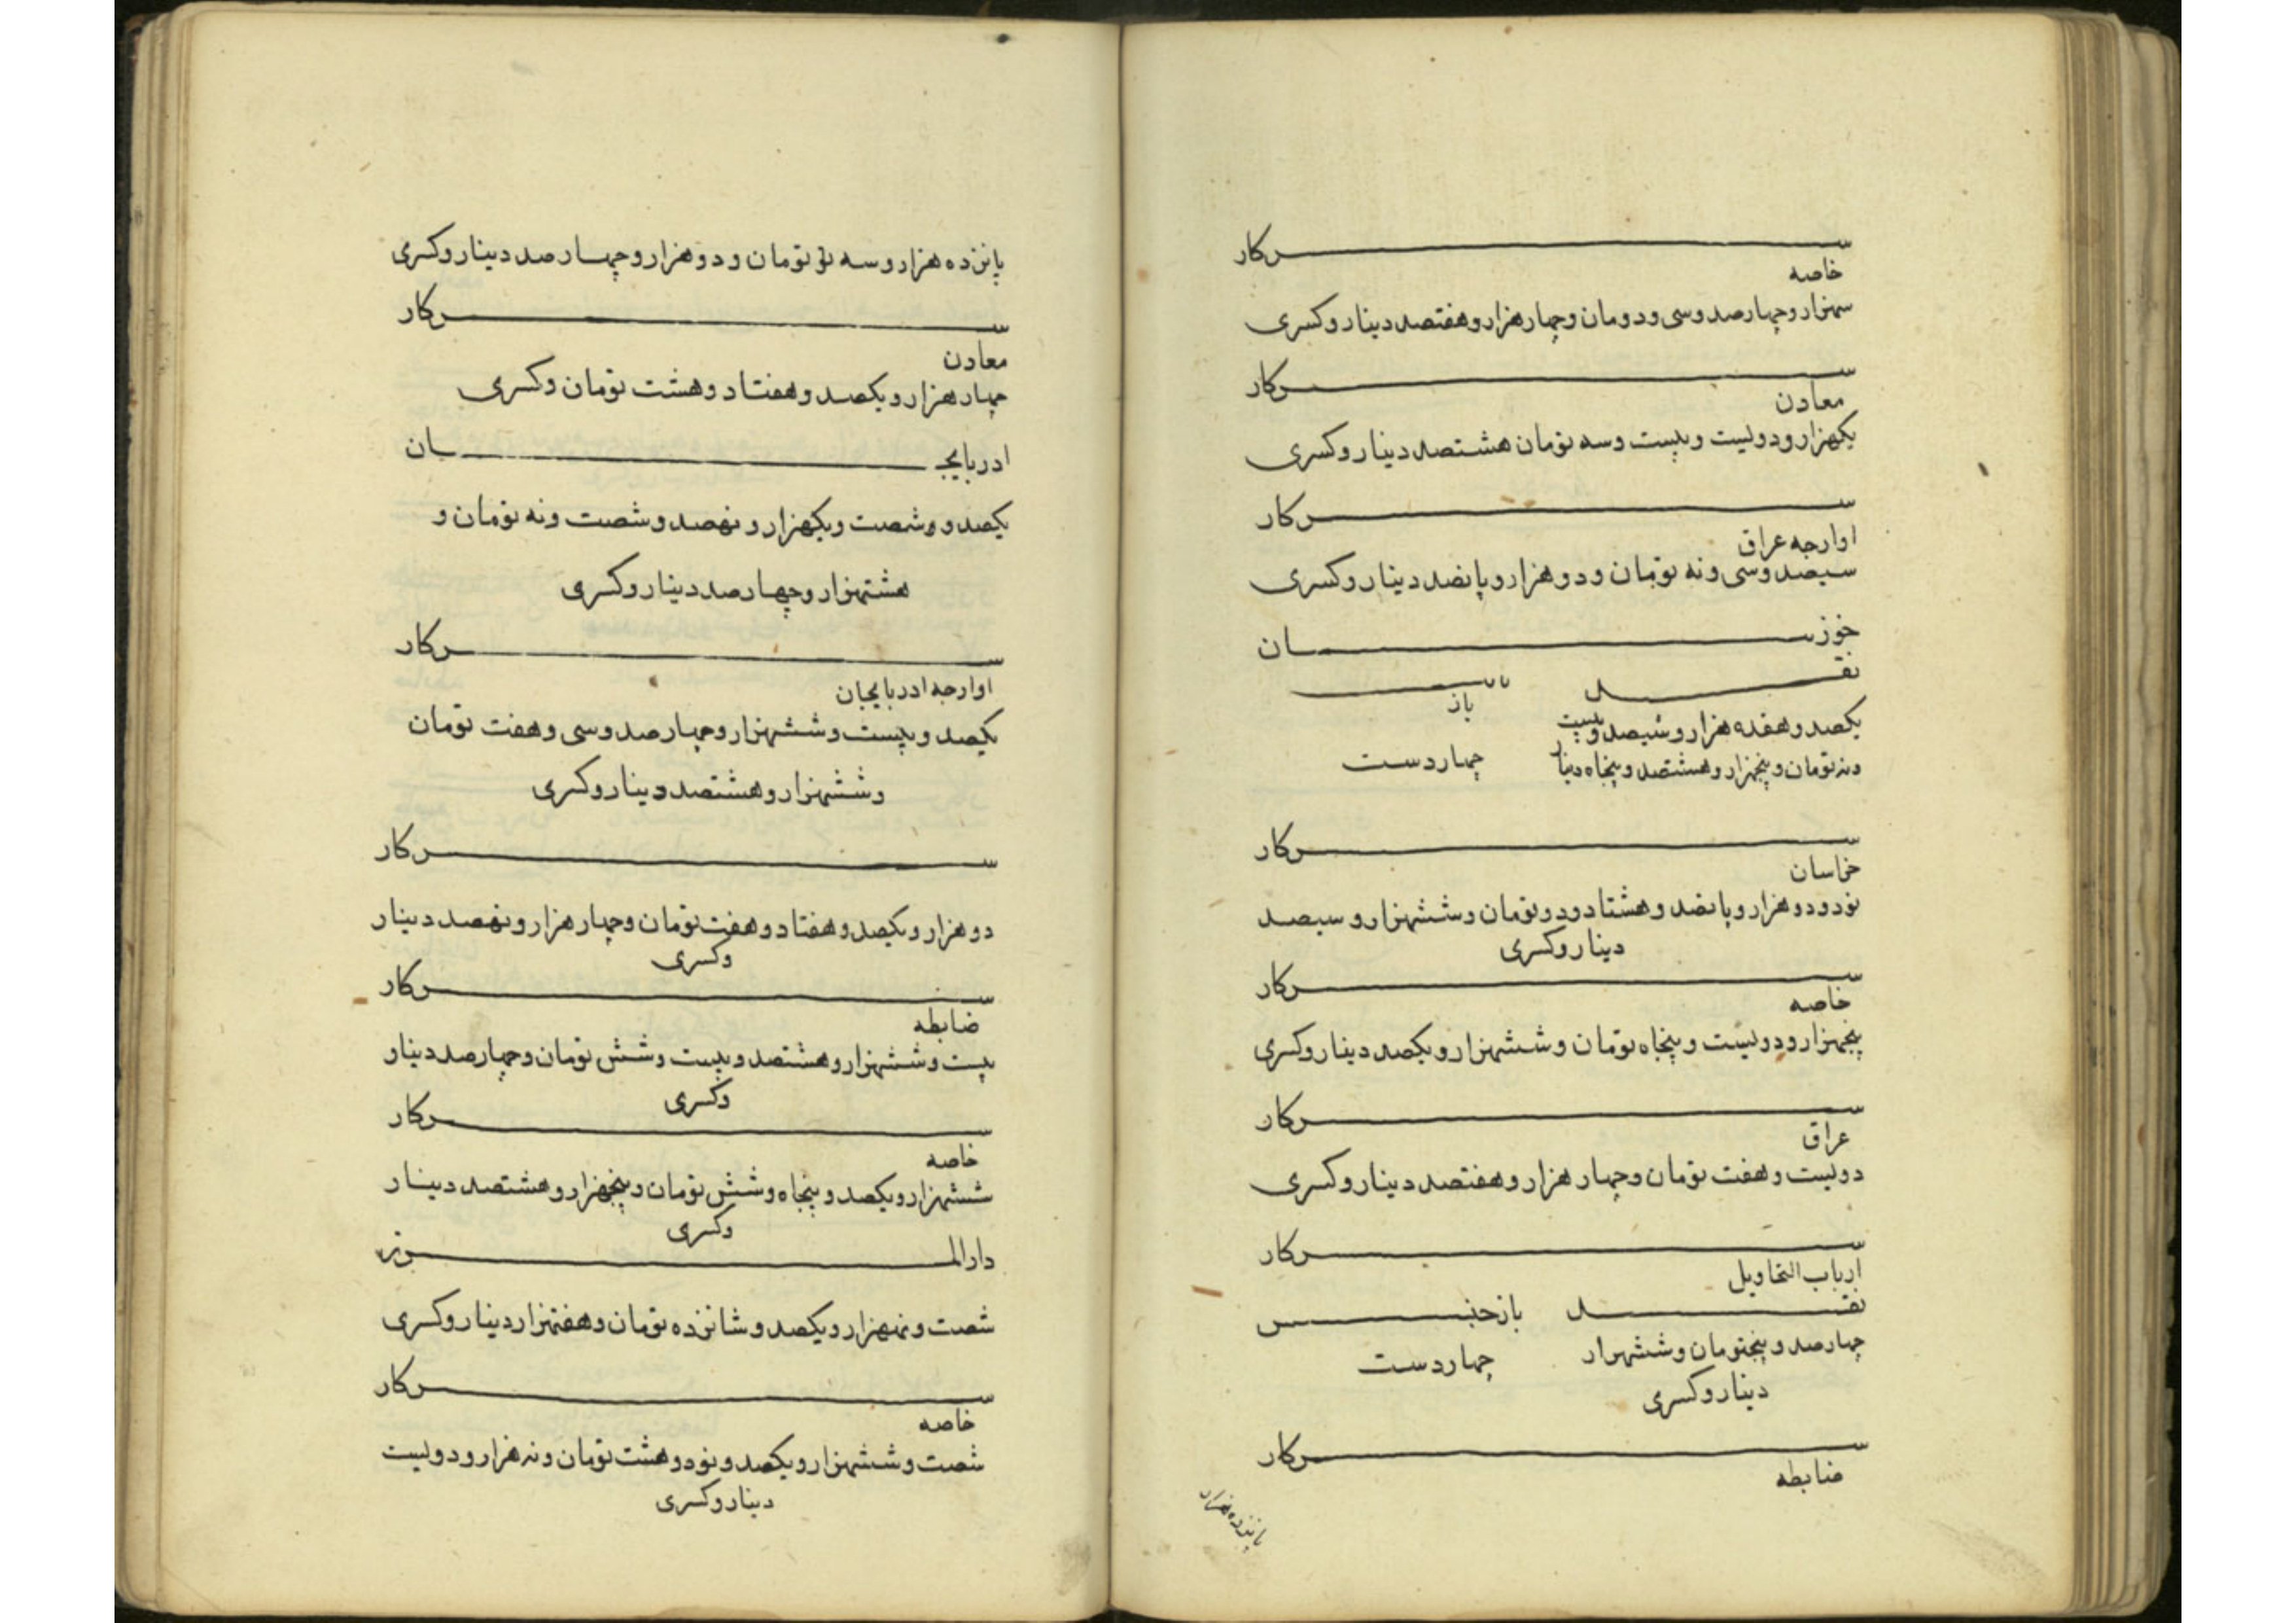 سرکار
خاصه
سهزار و چهارصد و سی و دومان و چهار هزار و هفتصد دینار و کسری
سرکار
معادن
یکهزار و دولیست و بیست و سه تومان هشتصد دینار و کسری
سرکار
اوارجه عراق
سیصد و سی و نه تومان و دو هزار و پانصد دینار و کسری
خوزسان
نقد
باز
یکصد و هفده هزار و شیصد و بیست
ونه تومان و پنجهزار و هشتصد و پنجاه دینار
چهار دست
سرکار
خراسان
نود و دو هزار و پانصد و هشتاد و دو تومان و ششهزار و سیصد
دینار و کسری
سرکار
خاصه
پنجهزار و دولیست و پنجاه تومان و ششهزار و یکصد دینار و کسری
سرکار
عراق
دولیست و هفت تومان و چهار هزار و هفتصد دینار و کسری
سرکار
ارباب التحاویل
نقد
باز جنس
چهارصد و پنجتومان و ششهرار
دینار و کسری
چهار دست
سرکار
ضابطه
پانزده هزار
پانزده هزار و سه تومان و دو هزار و چهارصد دینار و کسری
سرکار
معادن
چهار هزار و یکصد و هفتاد و هشت تومان و کسری
ادربایجان
یکصد و شصت و یکهزار و نهصد و شصت و نه تومان و
هشتهزار و چهارصد دینار و کسری
سرکار
اوارجه ادربایجان
یکصد و بیست و ششهزار و چهارصد و سی و هفت تومان
و ششهزار و هشتصد دینار و کسری
سرکار
دو هزار و یکصد و هفتاد و هفت تومان و چهار هزار و نهصد دینار
و کسری
سرکار
ضابطه
بیست و ششهزار و هشتصد و بیست و شش تومان و چهارصد دینار
و کسری
سرکار
خاصه
ششهزار و یکصد و پنجاه و شش تومان و پنجهزار و هشتصد دینار
و کسری
دارالمرز
شصت و نهزار و یکصد و شانزده تومان و هفتهزار دینار و کسری
سرکار
خاصه
شصت و ششهزار و یکصد و نود و هشت تومان و نه هزار و دولیست
دینار و کسری